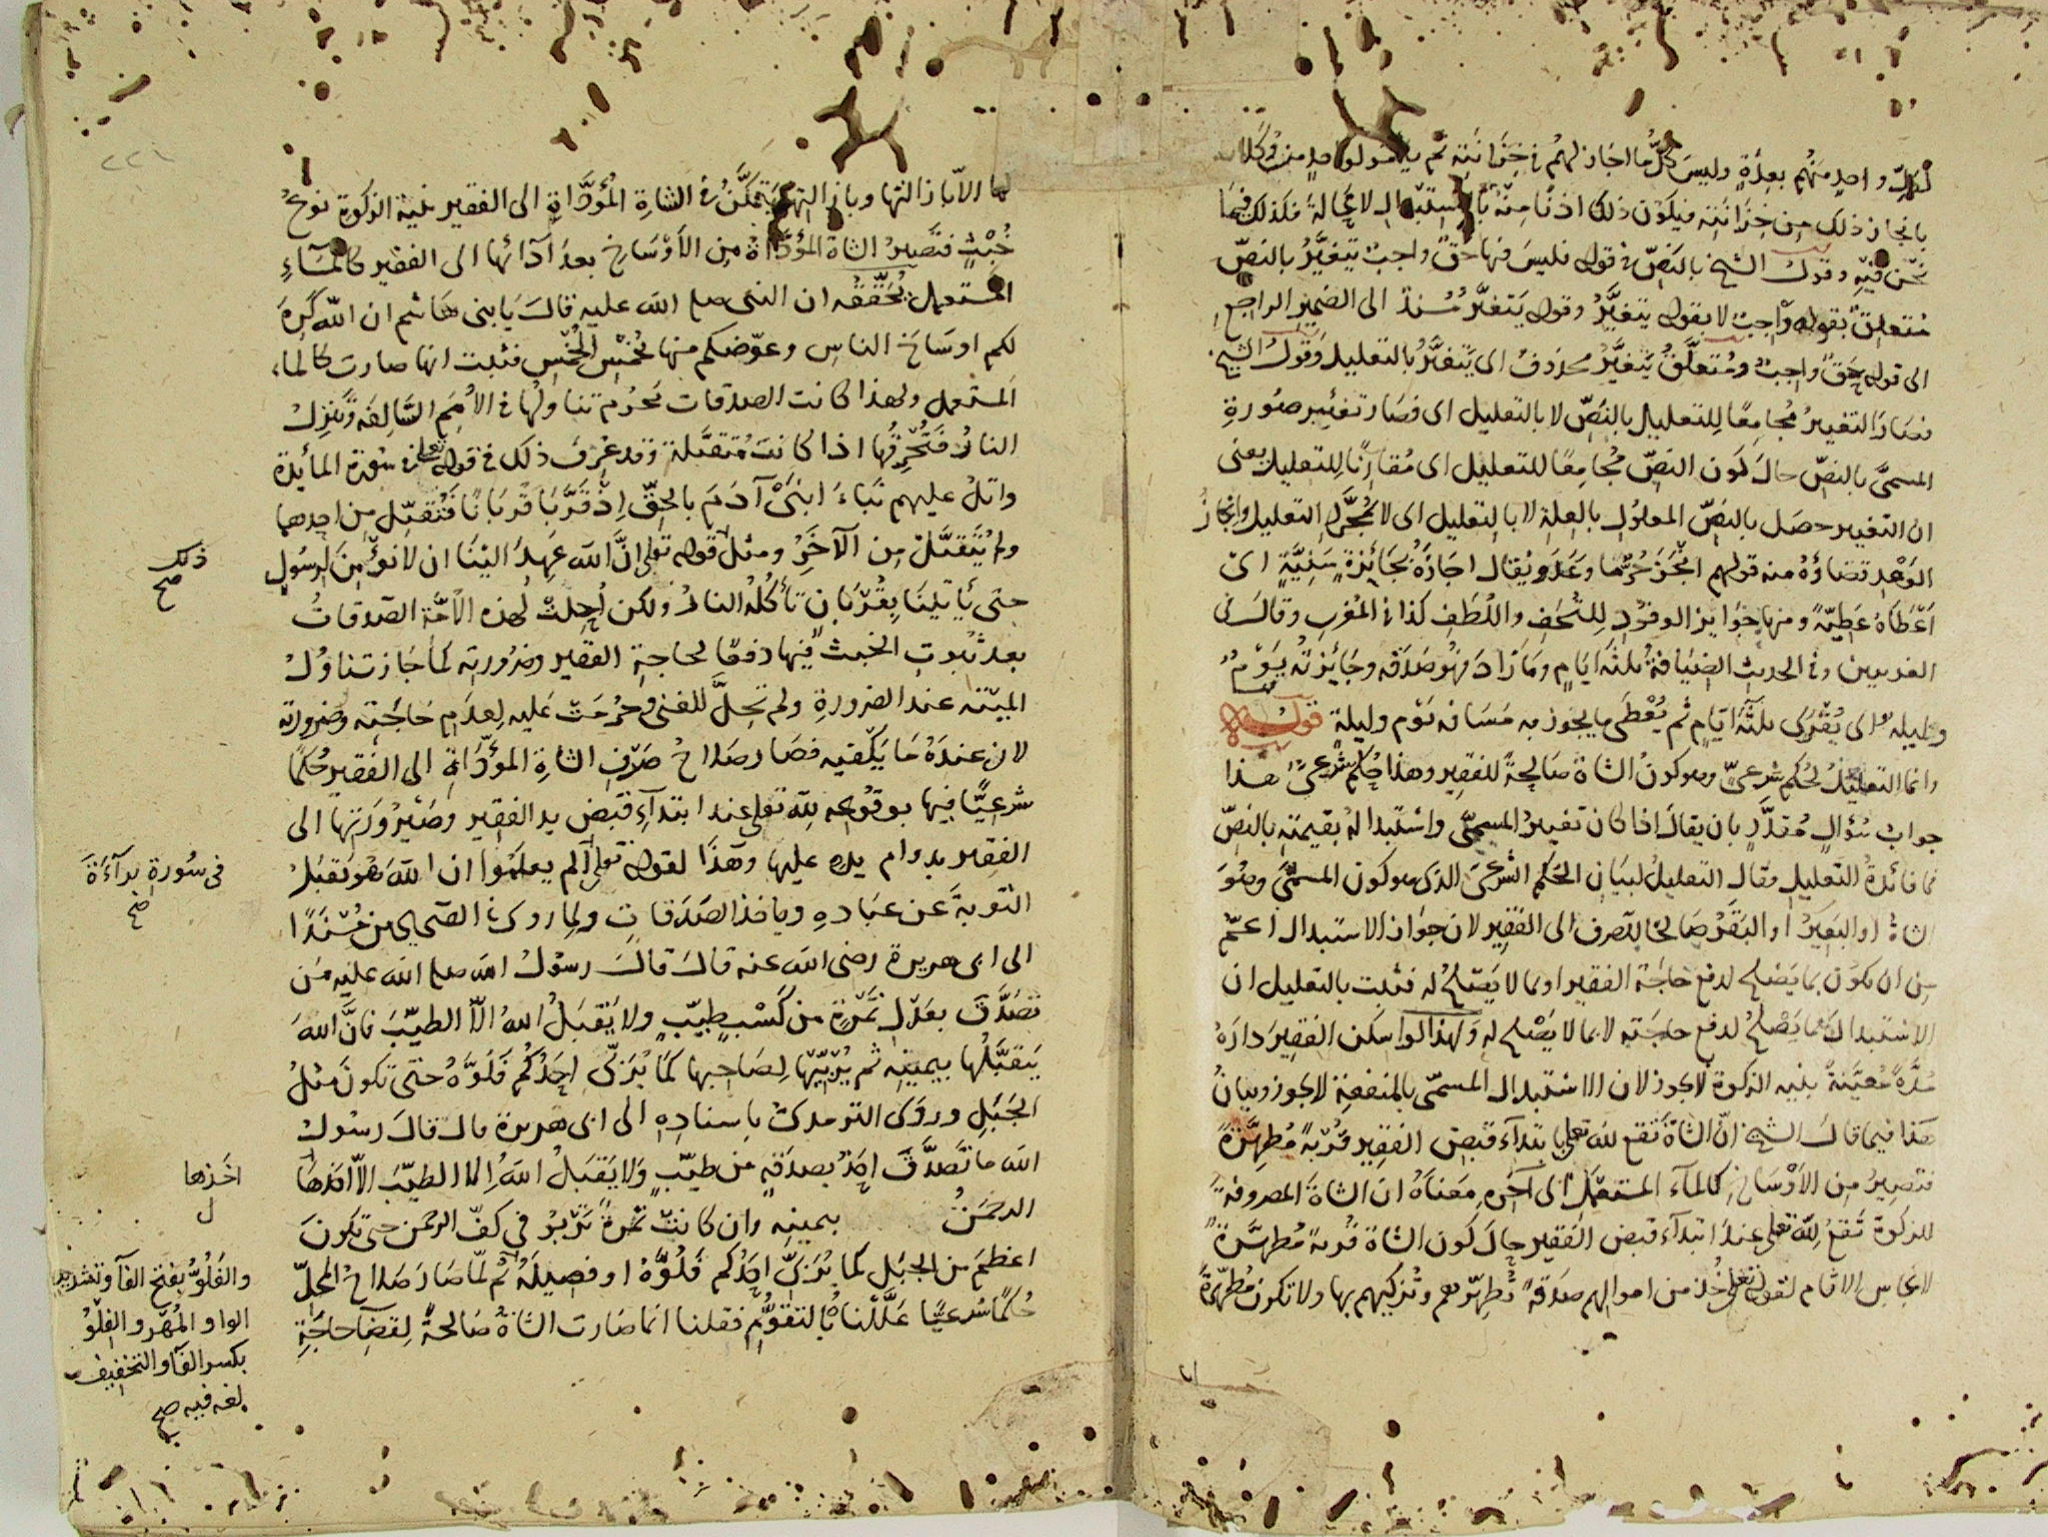 لكل واحد منهم بعدة وليس كل ما اجاز لهم في خزانته ثم يامر لواحد من وكلائه
بانجاز ذلك من خزانته فيكون ذلك اذنا منه بالاستبدال لا محالة فكذلك فيما
نحن فيه وقول الشيخ بالنص في قوله فليس فيها حق واجب يتغير بالنص
متعلق بقوله واجب لا بقوله يتغير وقوله يتغير مسند الى الضمير الراجع
الى قوله حق واجب ومتعلق يتغير محذوف اى يتغير بالتعليل وقول الشيخ
فصار التغيير مجامعا للتعليل بالنص لا بالتعليل اى فصار تغيير صورة
المسمى بالنص حال كون النص مجامعا للتعليل اى مقارنا للتعليل يعنى
ان التغيير حصل بالنص المعلول بالعلة لا بالتعليل اى لا بمجرد التعليل وانجاز
الوعد قضاؤه منه قولهم انجز حر ما وعد ويقال اجازه بجائزة سنية اى
اعطاه عطية ومنها جوايز الوفود للتحف واللطف كذا في المغرب وقال في
الغريبين وفي الحديث الضيافة ثلثة ايام وما زاد فهو صدقه وجايزته يوم
وليلة اى يقرى ثلثة ايام ثم يعطى ما يجوز به مسافة يوم وليلة قوله
وانما التعليل لحكم شرعى وهو كون الشاة صالحة للفقير وهذا حكم شرعى هذا
جواب سؤال مقدر بان يقال اذا كان تغيير المسمى واستبداله بقيمته بالنص
فما فائدة التعليل فقال التعليل لبيان الحكم الشرعى الذى هو كون المسمى وهو
الشاة او البعير او البقر صالحا للصرف الى الفقير لان جواز الاستبدال اعم
من ان يكون بما يصلح لدفع حاجة الفقير او بما لا يصلح له فثبت بالتعليل ان
الاستبدال بما يصلح لدفع حاجته لا بما لا يصلح له ولهذا لو اسكن الفقير داره
مدة معينة بنية الزكوة لا يجوز لان الاستبدال المسمى بالمنفعة لا يجوز وبيان
هذا فيما قال الشيخ ان الشاة تقع لله تعلى بابتداء قبض الفقير قربة مطهرة
فتصير من الاوساخ كالماء المستعمل الى آخره معناه ان الشاة المصروفة
للزكوة تقع لله تعلى عند ابتداء قبض الفقير حال كون الشاة قربة مطهرة
لانجاس الاثام لقوله تعلى خذ من اموالهم صدقة تطهرهم وتزكيهم بها ولا تكون مطهرة
لها الا بازالتها وبازالتها يتمكن في الشاة المؤداة الى الفقير بنية الزكوة نوع
خبث فتصير الشاة المؤداة من الاوساخ بعد آدائها الى الفقير كالماء
المستعمل يحققه ان النبى صلع الله عليه قال يا بنى هاشم ان الله كره
لكم اوساخ الناس وعوضكم منها بخمس الخمس فثبت انها صارت كالماء
المستعمل ولهذا كانت الصدقات تحرم تناولها في الامم السالفة وتنزل
النار فتحرقها اذا كانت متقبلة وقد عرف ذلك في قوله تعلى في سورة المائدة
واتل عليهم نباء ابنى آدم بالحق اذ قربا قربانا فتقبل من احدهما
ولم يتقبل من الآخر ومثل قوله تعلى ان الله عهد الينا ان لا نؤمن لرسول
ذلك
صح
حتى ياتينا بقربان تأكله النار ولكن احلت لهذه الامة الصدقات
بعد ثبوت الخبث فيها دفعا لحاجة الفقير وضرورته كما جاز تناول
الميتة عند الضرورة ولم تحل للغنى وحرمت عليه لعدم حاجته وضرورته
لان عنده ما يكفيه فصار صلاح صرف الشاة المؤداة الى الفقير حكما
شرعيا فيها بوقوعه لله تعلى عند ابتداء قبض يد الفقير وصيرورتها الى
الفقير بدوام يده عليها وهذا لقوله تعلى الم يعلموا ان الله هو يقبل
فى سورة براءة
صح
التوبة عن عباده وياخذ الصدقات ولما روى في الصحاح مسندا
الى ابى هريرة رضى الله عنه قال قال رسول الله صلع الله عليه من
تصدق بعدل تمرة من كسب طيب ولا يقبل الله الا الطيب فان الله
يتقبلها بيمينه ثم يربيها لصاحبها كما يربى احدكم فلوه حتى تكون مثل
الجبل وروى الترمذى باسناده الى ابى هريرة قال قال رسول
الله ما تصدق احد بصدقة من طيب ولا يقبل الله الا الطيب الا اخذها
اخذها
ل
الرحمن بيمينه وان كانت تمرة تربو في كف الرحمن حتى تكون
اعظم من الجبل كما يربى احدكم فلوه او فصيله ثم لما صار صلاح المحل
حكما شرعيا عللنا بالتقوم فقلنا انما صارت الشاة صالحة لقضاء حاجة
والفلو بفتح الفاء وتشديد
الواو المهر والفلو
بكسر الفاء والتخفيف
لغة فيه صح